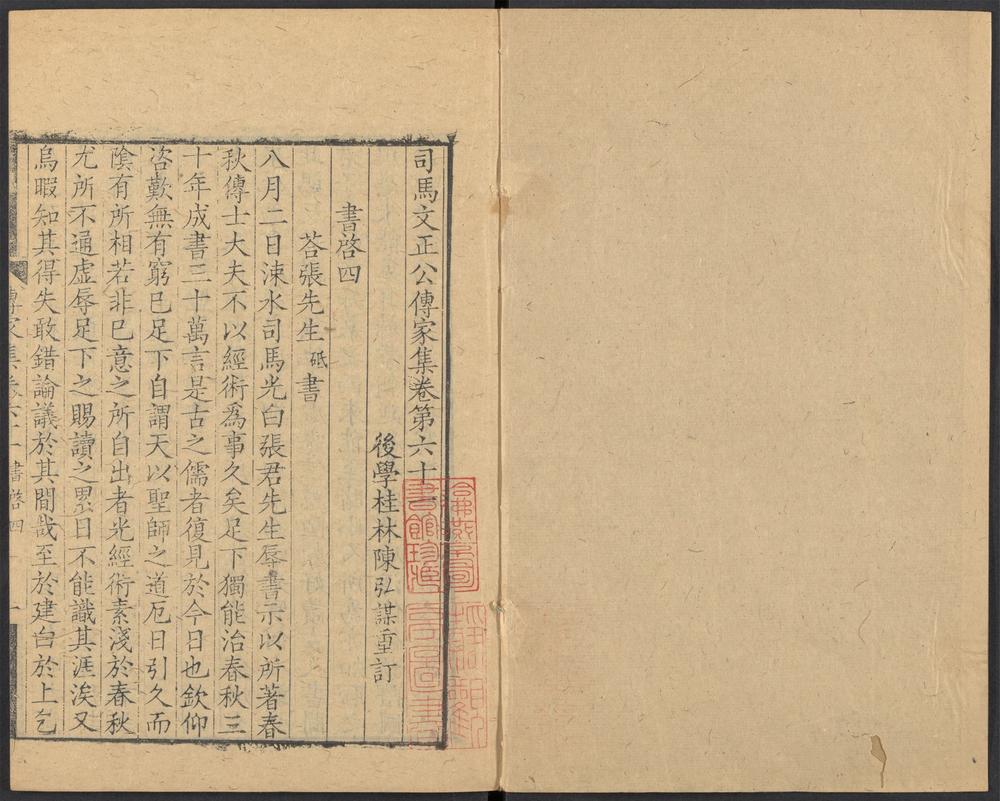 司馬文正公傳家集卷第六十
後學桂林陳弘謀重訂
書啓四
荅張先生砥書
八月二日涑水司馬光白張君先生辱書示以所著春
秋傳士大夫不以經術爲事久矣足下獨能治春秋三
十年成書三十萬言是古之儒者復見於今日也欽仰
咨歎無有窮已足下自謂天以聖師之道厄日引久而
隂有所相若非已意之所自出者光經術素淺於春秋
尤所不通虚辱足下之賜讀之累日不能識其涯涘又
烏暇知其得失敢錯論議於其間哉至於建白於上乞
傳家集卷六十 書啓四 一
書館珍藏